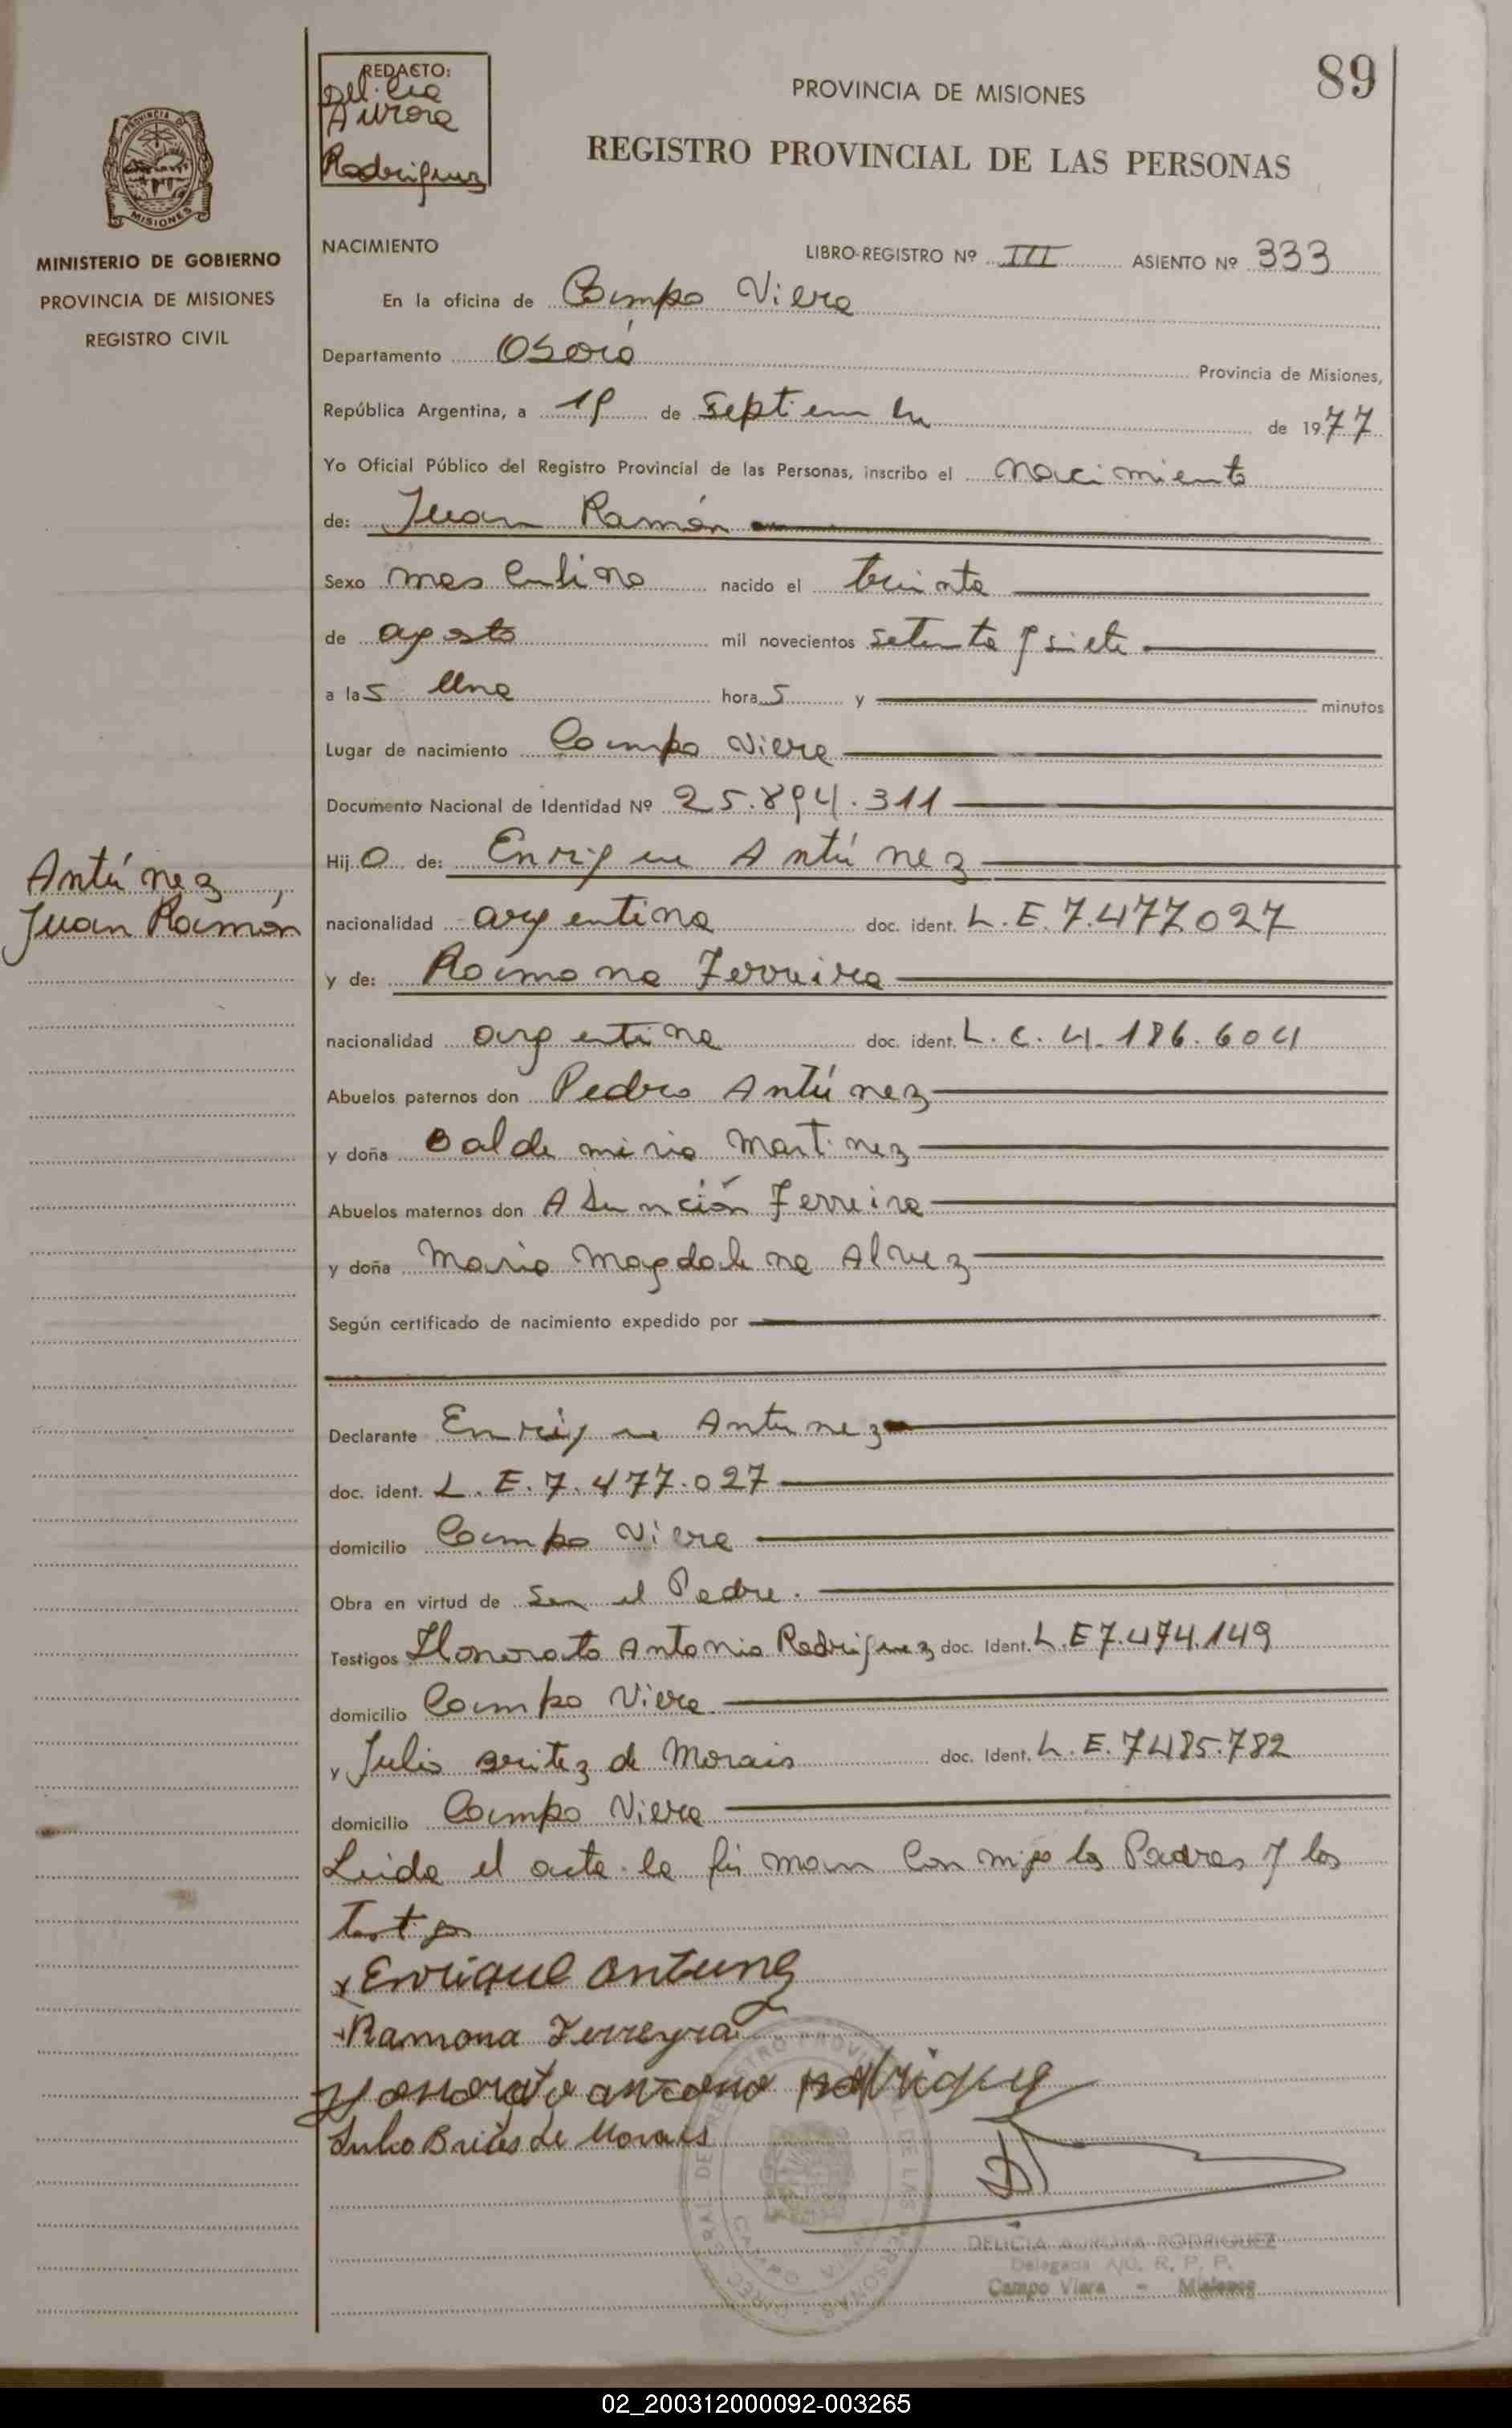 REDACTO:
Delicia
Aurora
Rodriguez
89
PROVINCIA DE MISIONES
REGISTRO PROVINCIAL DE LAS PERSONAS
MISIONES
MINISTERIO DE GOBIERNO
PROVINCIA DE MISIONES
REGISTRO CIVIL
NACIMIENTO LIBRO-REGISTRO Nº III ASIENTO Nº 333
En la oficina de Campo Viera
Departamento Provincia de Misiones,
República Argentina, a de Septiembre de 1977
Yo Oficial Público del Registro Provincial de las Personas, inscribo el nacimiento
de: Juan Ramón
Sexo masculino nacido el treinta
de agosto mil novecientos setenta y siete
a las una hora s y minutos
Lugar de nacimiento Campo Viera
Documento Nacional de Identidad Nº 25.894.311
Antúnez,
Juan Ramón
Hijo de: Enrique Antúnez
nacionalidad argentina doc. ident. L.E. 7.477027
y de: Ramona Ferreira
nacionalidad argentina doc. ident. L.C. 4.186.604
Abuelos paternos don Pedro Antúnez
y doña Baldemiria Martinez
Abuelos maternos don Asunción Ferreira
y doña Maria Magdalena Alvez
Según certificado de nacimiento expedido por
Declarante Enrique Antunez
doc. ident. L.E. 7.477.027
domicilio Campo Viera
Obra en virtud de Ser el Padre.
Testigos Honorato Antonio Rodriguez doc. Ident. L.E 7.474.149
domicilio Campo Viera
y Julio Britez de Morais doc. Ident. L.E. 7485.782
domicilio Campo Viera
Leida el acta la firman conmigo los Padres y los
testigos
x Enrique antunez
x Ramona Ferreyra
Honorato antonio rodriguez
Julio Brites de Morais
DELICIA AURORA RODRIGUEZ
Delegada R. P. P.
Campo Viera - Misiones
02_200312000092-003265